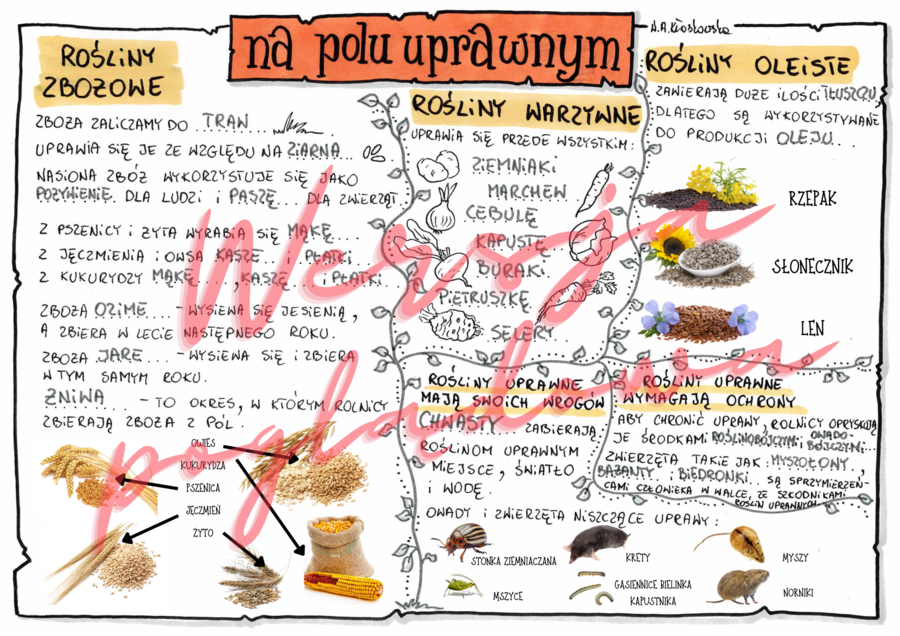 na polu uprawnym
A.A.Kłosłowska
ROŚLINY
ZBOŻOWE
ZBOŻA ZALICZAMY DO TRAW
UPRAWIA SIĘ JE ZE WZGLĘDU NA ZIARNA...
NASIONA ZBÓŻ WYKORZYSTUJE SIĘ JAKO
POŻYWIENIE. DLA LUDZI I PASZĘ... DLA ZWIERZĄT.
Z PSZENICY I ŻYTA WYRABIA SIĘ MĄKĘ....
Z JĘCZMIENIA I OWSA KASZĘ.. I PŁATKI..
Z KUKURYDZY MĄKĘ....,KASZĘ... I PŁATKI.
ZBOŻA OZIME.... - WYSIEWA SIĘ JESIENIĄ,
A ZBIERA W LECIE NASTĘPNEGO ROKU.
ZBOŻA JARE.... - WYSIEWA SIĘ I ZBIERA
W TYM SAMYM ROKU.
ŻNIWA... - TO OKRES, W KTÓRYM ROLNICY
ZBIERAJĄ ZBOŻA Z PÓL.
OWIES
KUKURYDZA
PSZENICA
JĘCZMIEŃ
ŻYTO
ROŚLINY WARZYWNE
UPRAWIA SIĘ PRZEDE WSZYSTKIM:
ZIEMNIAKI
MARCHEW
CEBULĘ
KAPUSTĘ
BURAKI
PIETRUSZKĘ
SELERY
ROŚLINY OLEISTE
ZAWIERAJĄ DUŻE ILOŚCI TŁUSZCZU,
DLATEGO SĄ WYKORZYSTYWANE
DO PRODUKCJI OLEJU...
RZEPAK
SŁONECZNIK
LEN
ROŚLINY UPRAWNE
MAJĄ SWOICH WROGÓW
CHWASTY ZABIERAJĄ
ROŚLINOM UPRAWNYM
MIEJSCE, ŚWIATŁO
I WODĘ.
OWADY I ZWIERZĘTA NISZCZĄCE UPRAWY:
STONKA ZIEMNIACZANA
KRETY
MYSZY
MSZYCE
GĄSIENNICE BIELINKA
KAPUSTNIKA
NORNIKI
ROŚLINY UPRAWNE
WYMAGAJĄ OCHRONY
ABY CHRONIĆ UPRAWY, ROLNICY OPRYSKUJĄ
JE ŚRODKAMI ROŚLINOBÓJCZYMI I OWADO-
BÓJCZYMI...
ZWIERZĘTA TAKIE JAK: MYSZOŁOWY..,
BAŻANTY. I BIEDRONKI.. SĄ SPRZYMIERZEŃ-
CAMI CZŁOWIEKA W WALCE, ZE SZKODNIKAMI
ROŚLIN UPRAWNYCH.
Wersja
poglądowa